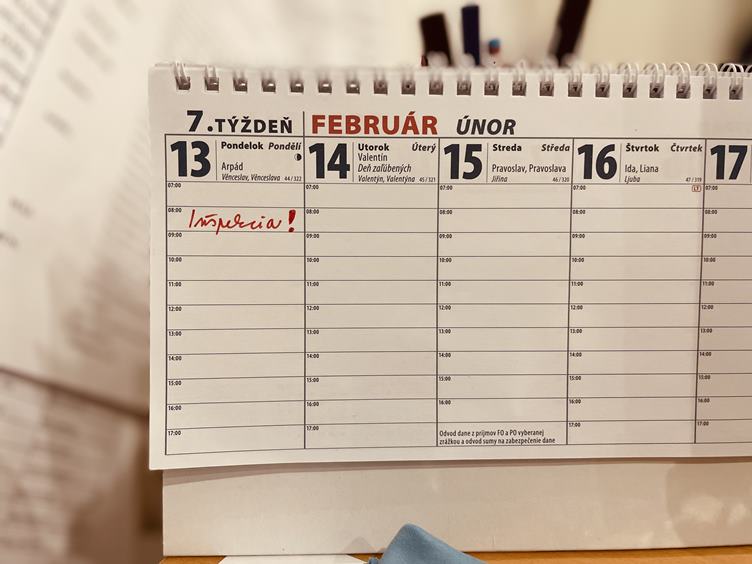 7. TÝŽDEŇ FEBRUÁR ÚNOR
13 Pondelok Pondělí
Arpád
Věnceslav, Věnceslava 44/322
14 Utorok Úterý
Valentín
Deň zaľúbených
Valentýn, Valentýna 45/321
15 Streda Středa
Pravoslav, Pravoslava
Jiřina 46/320
16 Štvrtok Čtvrtek
Ida, Liana
Ljuba 47/319
17
07:00 07:00 07:00 07:00 LT 07:00
08:00 Inšpekcia! 08:00 08:00 08:00 08:00
09:00 09:00 09:00 09:00 09:00
10:00 10:00 10:00 10:00 10:00
11:00 11:00 11:00 11:00 11:00
12:00 12:00 12:00 12:00 12:00
13:00 13:00 13:00 13:00 13:00
14:00 14:00 14:00 14:00 14:00
15:00 15:00 15:00 15:00 15:00
16:00 16:00 16:00 16:00 16:00
17:00 17:00 17:00 17:00
Odvod dane z príjmov FO a PO vyberanej
zrážkou a odvod sumy na zabezpečenie dane